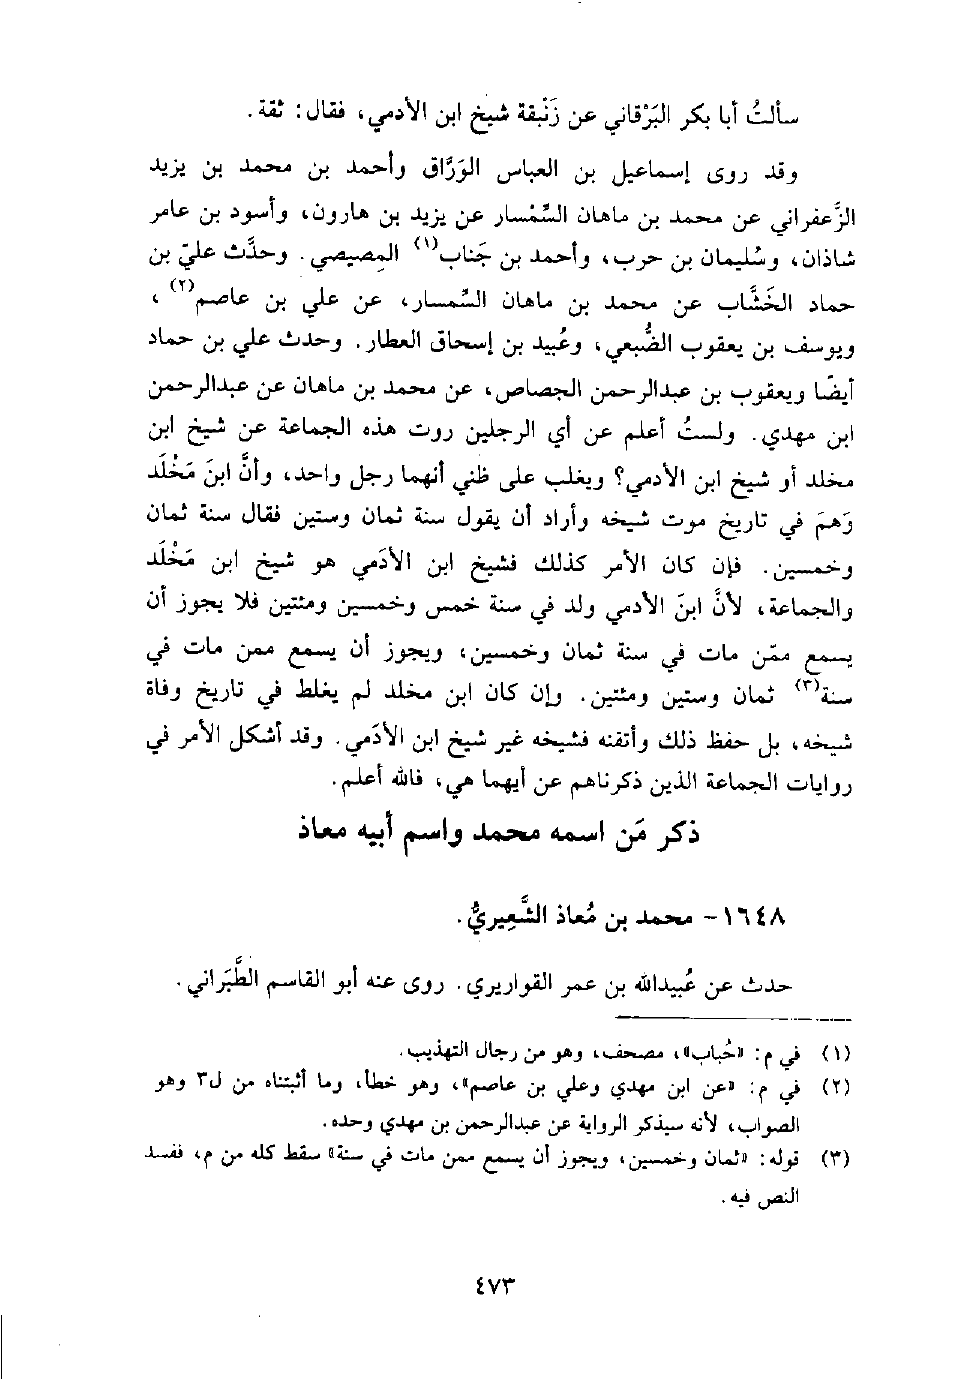 سألتُ أبا بكر البَرْقاني عن زَنْبقة شيخ ابن الأدمي، فقال: ثقة.
وقد روى إسماعيل بن العباس الوَرَّاق وأحمد بن محمد بن يزيد
الزَّعفراني عن محمد بن ماهان السِّمْسار عن يزيد بن هارون، وأسود بن عامر
شاذان، وسُليمان بن حرب، وأحمد بن جَناب(١) المِصيصي. وحدَّث عليّ بن
حماد الخَشَّاب عن محمد بن ماهان السِّمسار، عن علي بن عاصم(٢)،
ويوسف بن يعقوب الضُّبعي، وعُبيد بن إسحاق العطار. وحدث علي بن حماد
أيضًا ويعقوب بن عبدالرحمن الجصاص، عن محمد بن ماهان عن عبدالرحمن
ابن مهدي. ولستُ أعلم عن أي الرجلين روت هذه الجماعة عن شيخ ابن
مخلد أو شيخ ابن الأدمي؟ ويغلب على ظني أنهما رجل واحد، وأنَّ ابنَ مَخْلَد
وَهِمَ في تاريخ موت شيخه وأراد أن يقول سنة ثمان وستين فقال سنة ثمان
وخمسين. فإن كان الأمر كذلك فشيخ ابن الأدَمي هو شيخ ابن مَخْلَد
والجماعة، لأنَّ ابنَ الأدمي ولد في سنة خمس وخمسين ومئتين فلا يجوز أن
يسمع ممّن مات في سنة ثمان وخمسين، ويجوز أن يسمع ممن مات في
سنة(٣) ثمان وستين ومئتين. وإن كان ابن مخلد لم يغلط في تاريخ وفاة
شيخه، بل حفظ ذلك وأتقنه فشيخه غير شيخ ابن الأدَمي. وقد أشكل الأمر في
روايات الجماعة الذين ذكرناهم عن أيهما هي، فالله أعلم.
ذكر مَن اسمه محمد واسم أبيه معاذ
١٦٤٨- محمد بن مُعاذ الشَّعِيريُّ.
حدث عن عُبيدالله بن عمر القواريري. روى عنه أبو القاسم الطَّبَراني.
(١) في م: «خُباب»، مصحف، وهو من رجال التهذيب.
(٢) في م: «عن ابن مهدي وعلي بن عاصم»، وهو خطأ، وما أثبتناه من ل٣ وهو
الصواب، لأنه سيذكر الرواية عن عبدالرحمن بن مهدي وحده.
(٣) قوله: «ثمان وخمسين، ويجوز أن يسمع ممن مات في سنة» سقط كله من م، ففسد
النص فيه.
٤٧٣